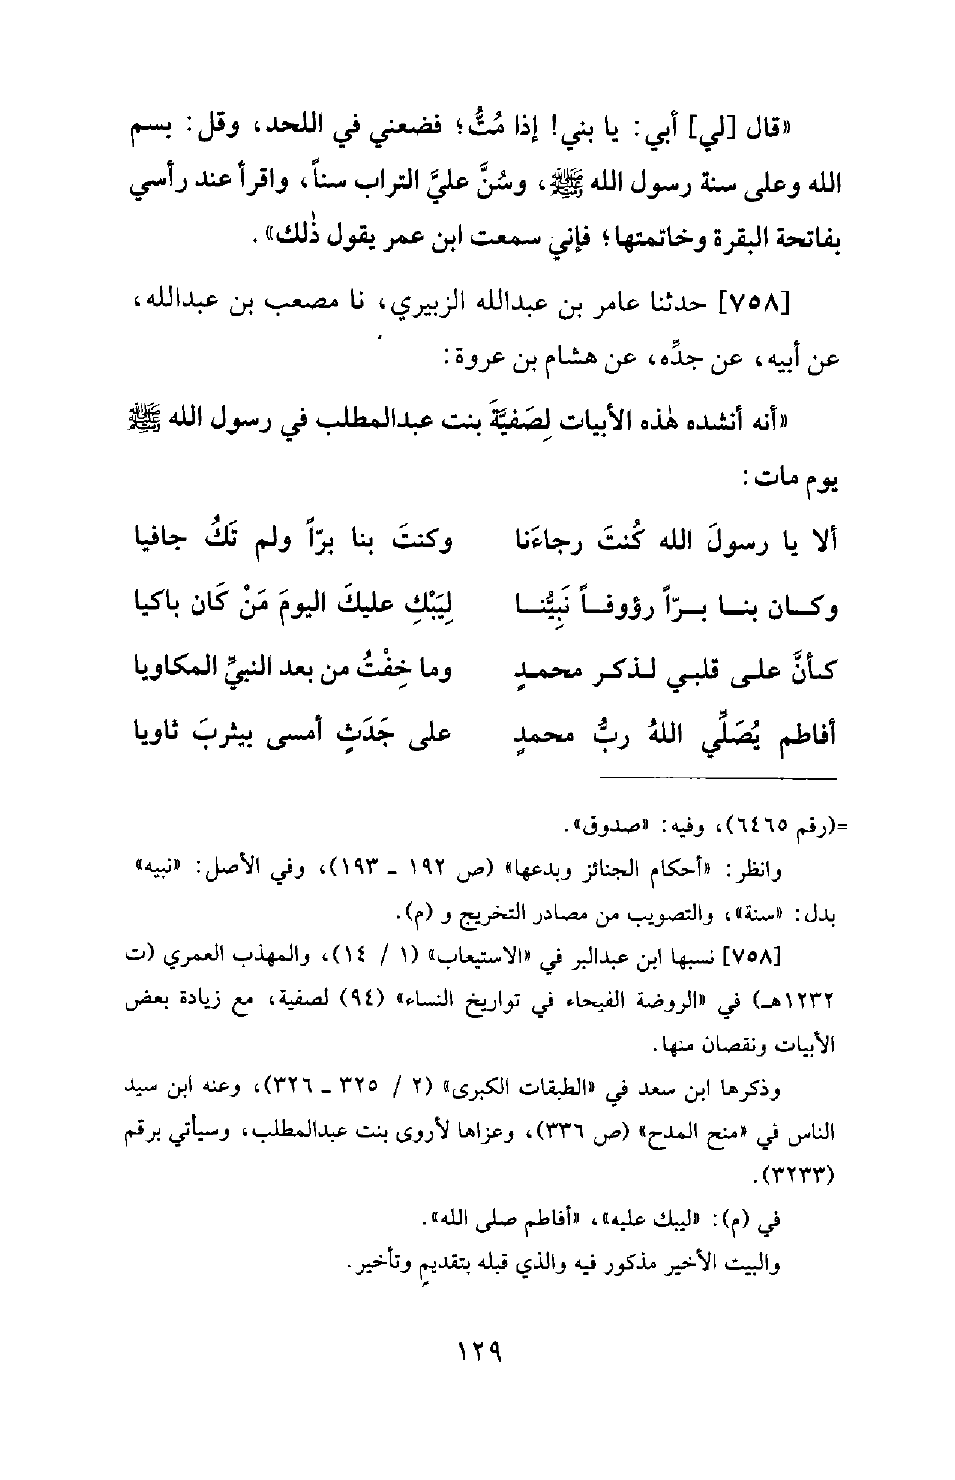 «قال [لي] أبي: يا بني! إذا مُتُّ؛ فضعني في اللحد، وقل: بسم
الله وعلى سنة رسول الله ﷺ، وسُنَّ عليَّ التراب سناً، واقرأ عند رأسي
بفاتحة البقرة وخاتمتها؛ فإني سمعت ابن عمر يقول ذٰلك».
[٧٥٨] حدثنا عامر بن عبدالله الزبيري، نا مصعب بن عبدالله،
عن أبيه، عن جدِّه، عن هشام بن عروة:
«أنه أنشده هٰذه الأبيات لِصَفيَّةَ بنت عبدالمطلب في رسول الله ﷺ
يوم مات:
ألا يا رسولَ الله كُنتَ رجاءَنا وكنتَ بنا برّاً ولم تَكُ جافيا
وكـان بنـا بـرّاً رؤوفـاً نَبِيُّنـا لِيَبْكِ عليكَ اليومَ مَنْ كَان باكيا
كـأنَّ علـى قلبـي لـذكـر محمـدٍ وما خِفْتُ من بعد النبيِّ المكاويا
أفاطم يُصَلِّي اللهُ ربُّ محمدٍ على جَدَثٍ أمسى بيثربَ ثاويا
=(رقم ٦٤٦٥)، وفيه: «صدوق».
وانظر: «أحكام الجنائز وبدعها» (ص ١٩٢ - ١٩٣)، وفي الأصل: «نبيه»
بدل: «سنة»، والتصويب من مصادر التخريج و (م).
[٧٥٨] نسبها ابن عبدالبر في «الاستيعاب» (١ / ١٤)، والمهذب العمري (ت
١٢٣٢هـ) في «الروضة الفيحاء في تواريخ النساء» (٩٤) لصفية، مع زيادة بعض
الأبيات ونقصان منها.
وذكرها ابن سعد في «الطبقات الكبرى» (٢ / ٣٢٥ - ٣٢٦)، وعنه ابن سيد
الناس في «منح المدح» (ص ٣٣٦)، وعزاها لأروى بنت عبدالمطلب، وسيأتي برقم
(٣٢٣٣).
في (م): «ليبك عليه»، «أفاطم صلى الله».
والبيت الأخير مذكور فيه والذي قبله بتقديمٍ وتأخير.
١٢٩